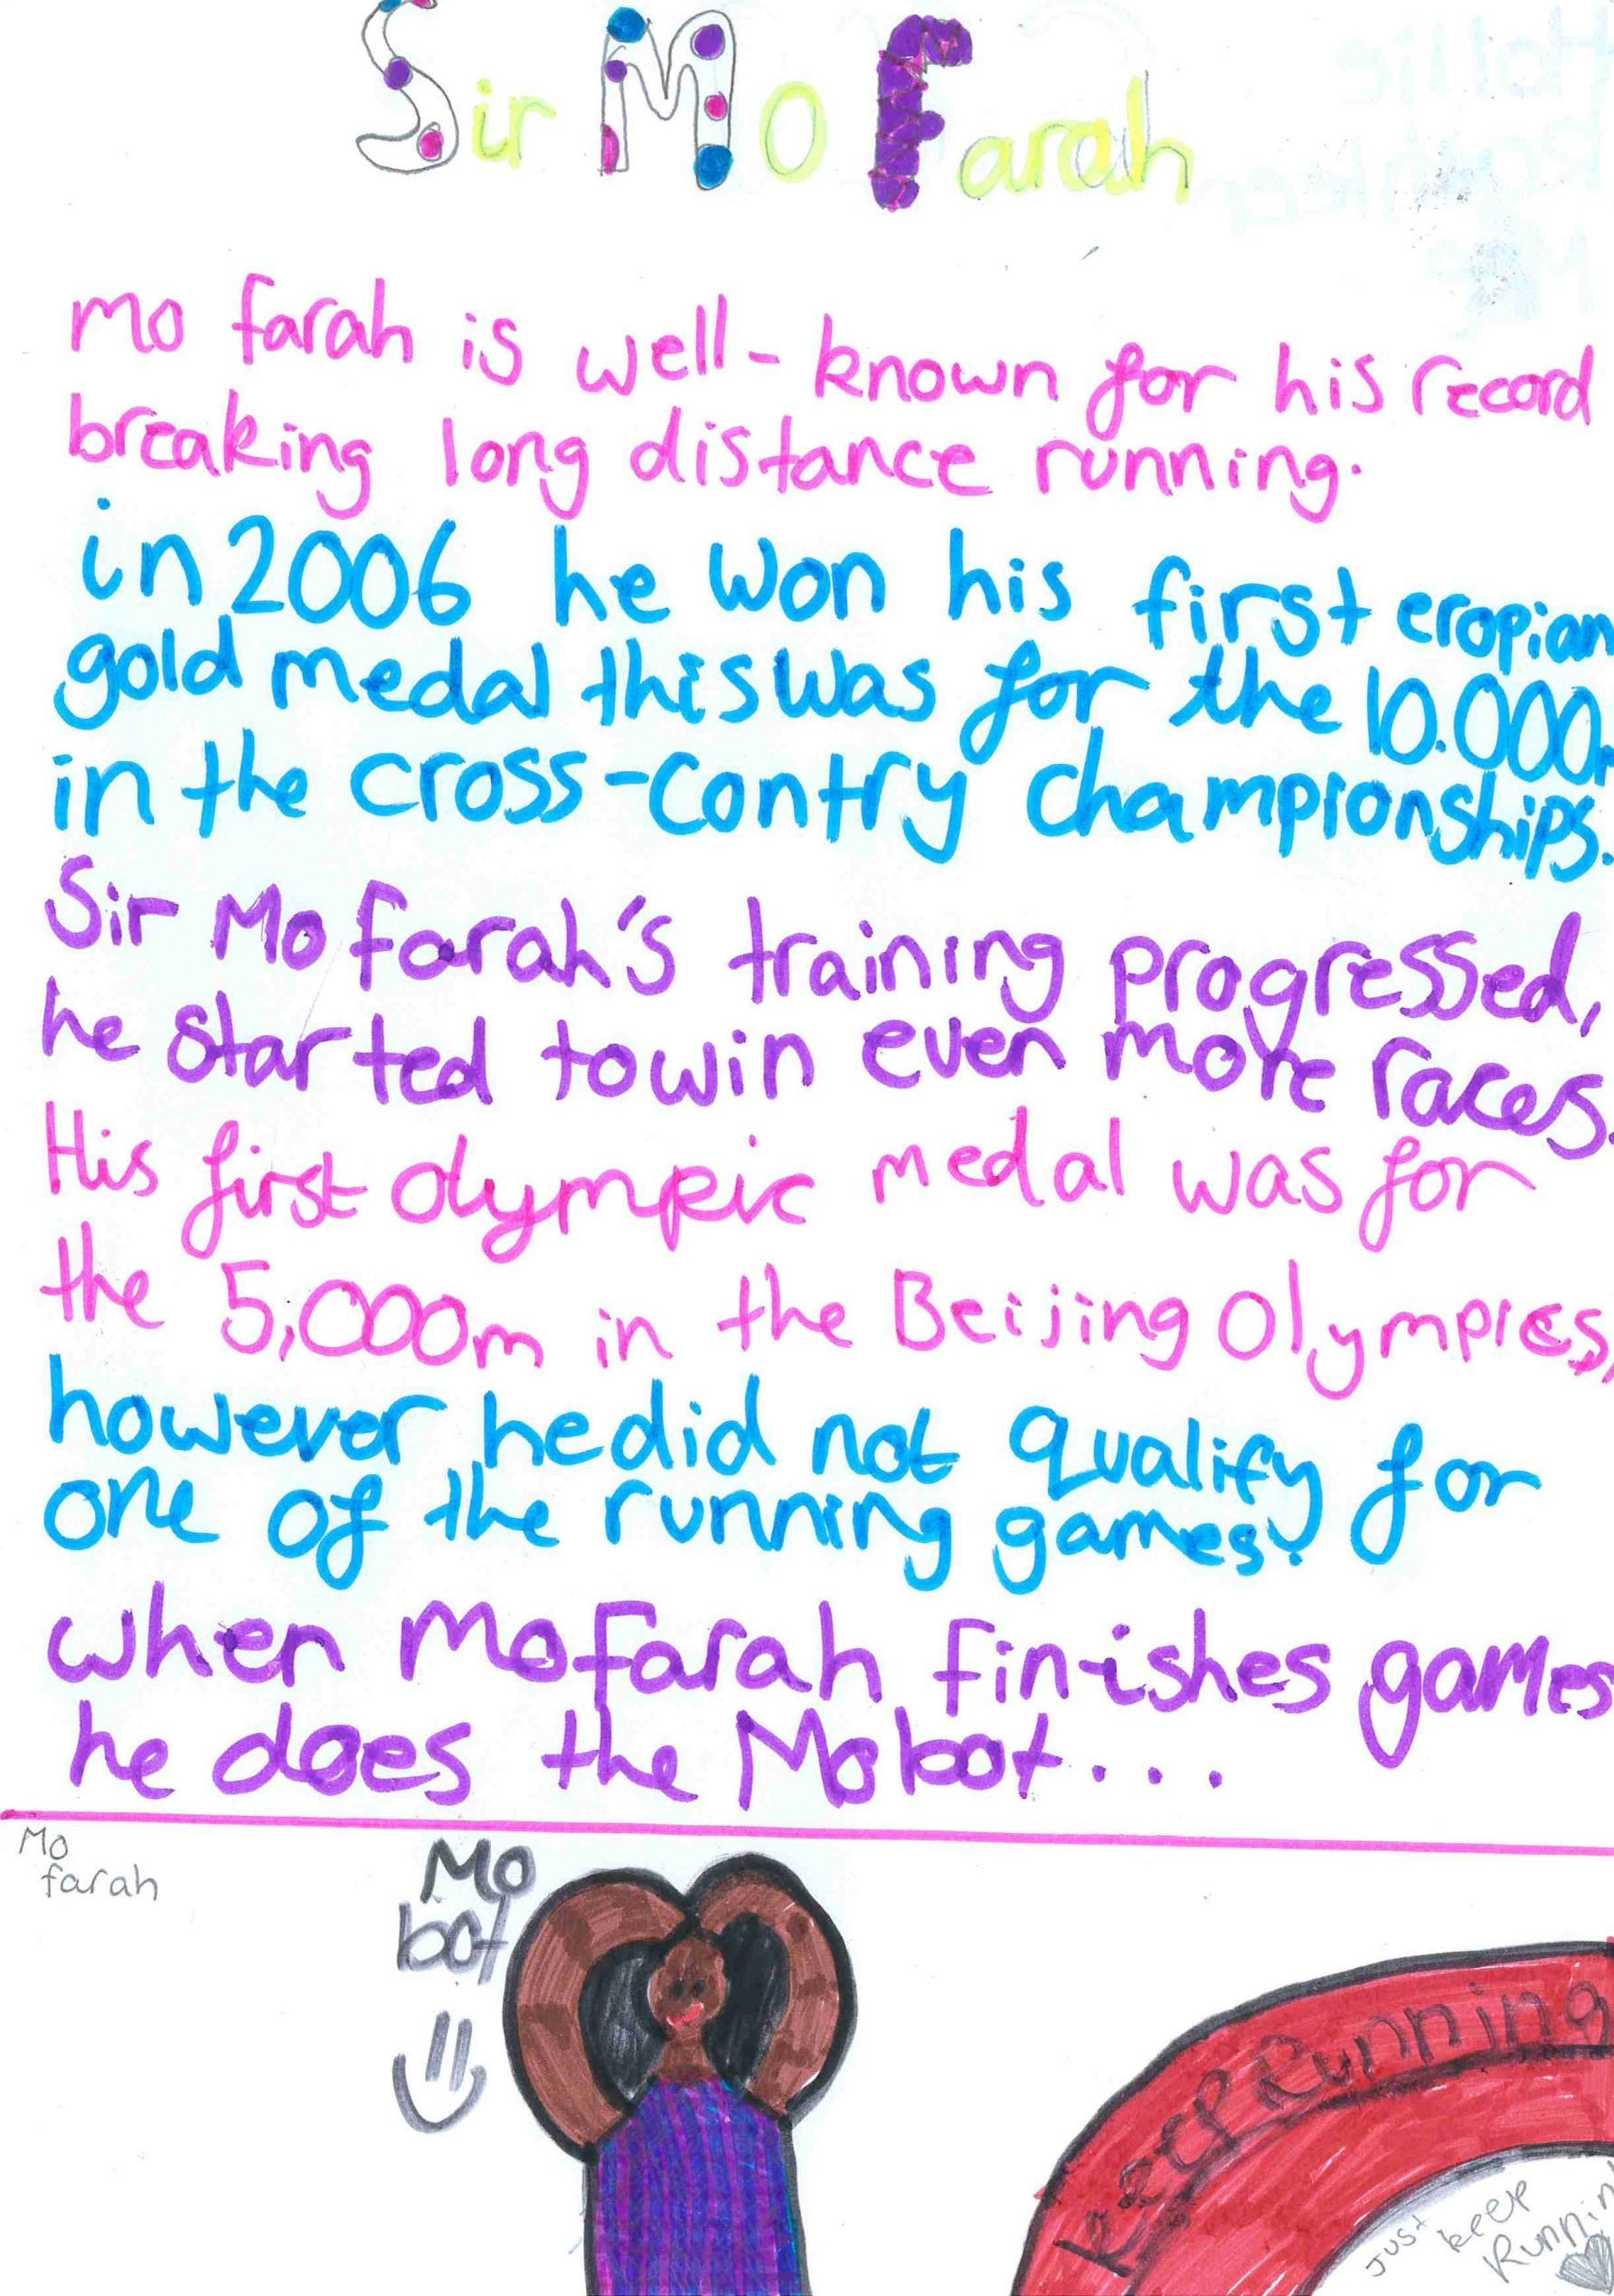 Sir Mo Farah
mo farah is well-known for his record
breaking long distance running.
in 2006 he won his first eropian
gold medal this was for the 10.000m
in the cross-contry championships.
Sir Mo farah's training progressed,
he started to win even more races.
His first olympic medal was for
the 5,000m in the Beijing Olympics,
however he did not qualify for
one of the running games.
when Mo farah finishes games
he does the Mobot...
Mo
farah
Mo
bot
keep Running
just keep
Runnin